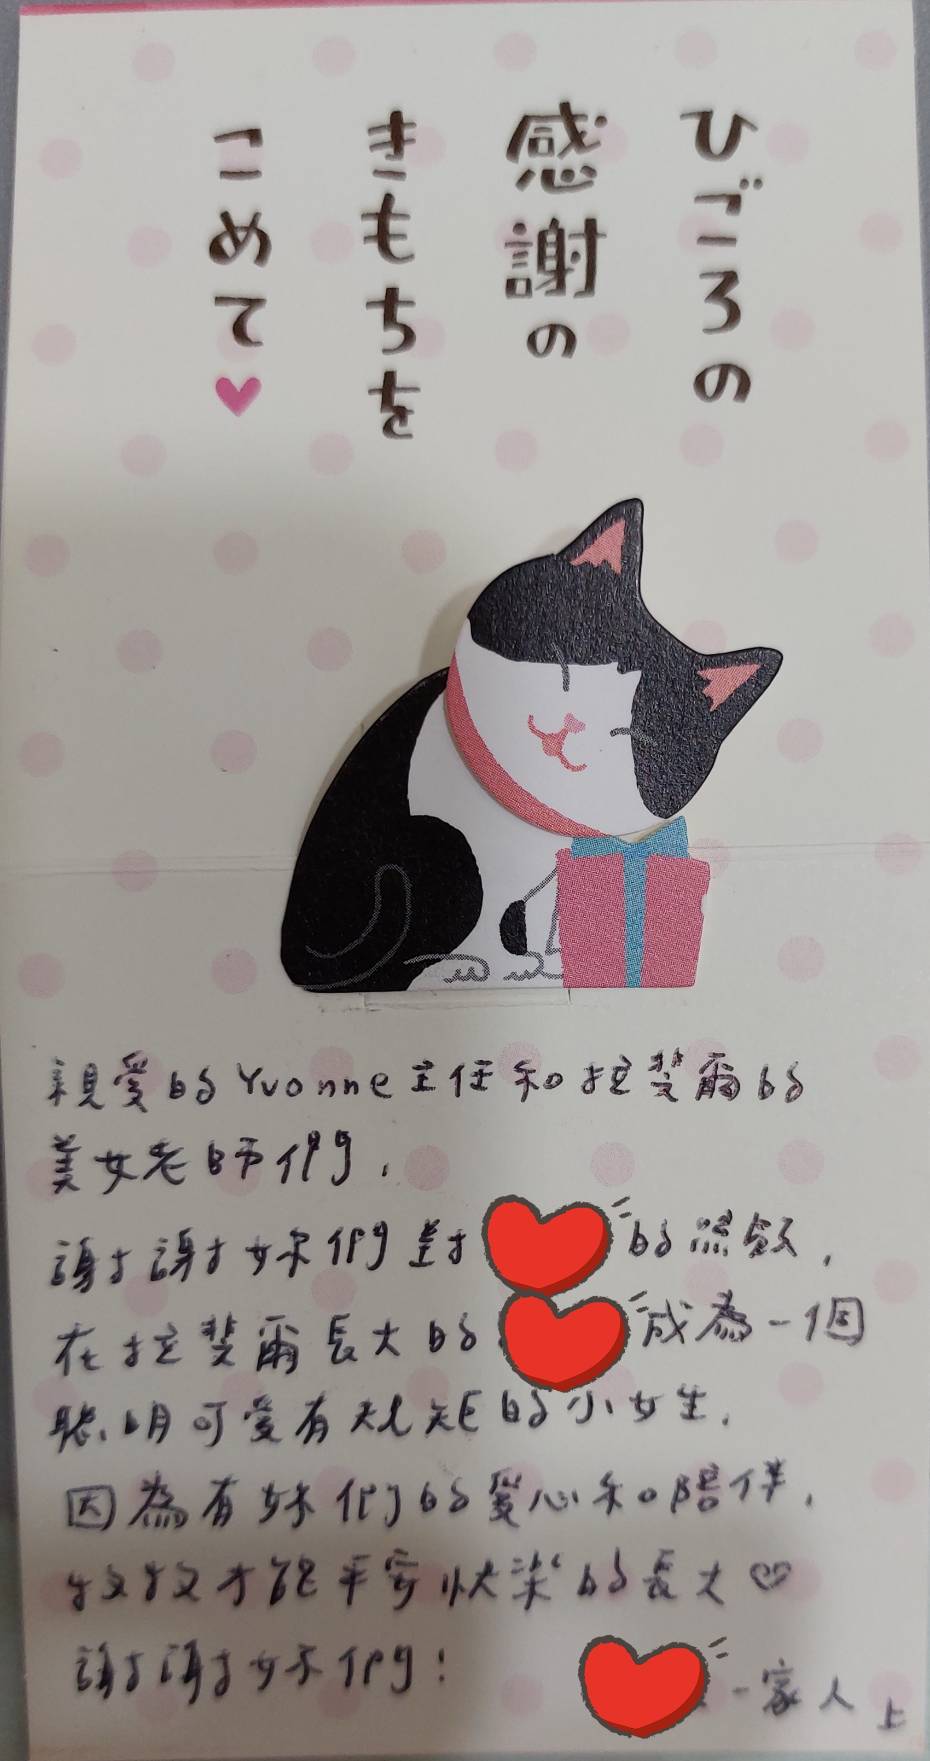 ひごろの
感謝の
きもちを
こめて♥
親愛的Yvonne主任和拉斐爾的
美女老師們，
謝謝妳們對 的照顧，
在拉斐爾長大的 成為一個
聰明可愛有規矩的小女生，
因為有妳們的愛心和陪伴，
牧牧才能平安快樂的長大♡
謝謝妳們！
一家人 上